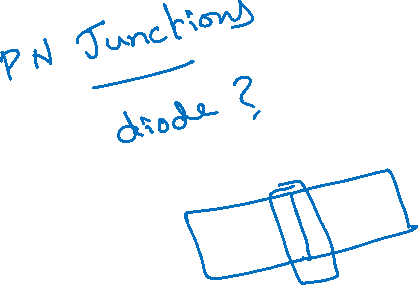 PN Junctions
diode?